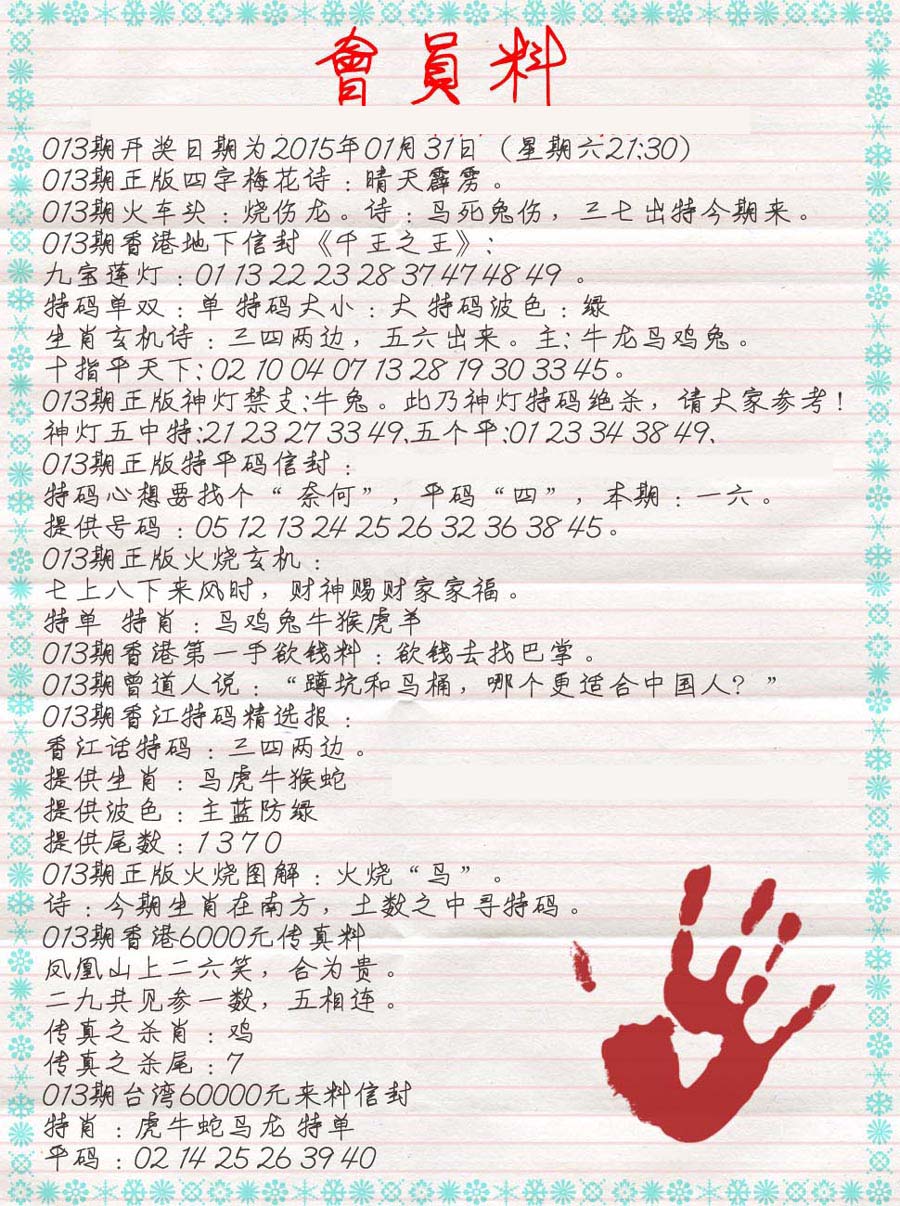 會員料
013期开奖日期为2015年01月31日（星期六21:30）
013期正版四字梅花诗：晴天霹雳。
013期火车头：烧伤龙。诗：马死兔伤，三七出特今期来。
013期香港地下信封《千王之王》：
九宝莲灯：01 13 22 23 28 37 47 48 49 。
特码单双：单 特码大小：大 特码波色：绿
生肖玄机诗：三四两边，五六出来。主：牛龙马鸡兔。
十指平天下：02 10 04 07 13 28 19 30 33 45。
013期正版神灯禁支：牛兔。此乃神灯特码绝杀，请大家参考！
神灯五中特：21 23 27 33 49、五个平：01 23 34 38 49、
013期正版特平码信封：
特码心想要找个“奈何”，平码“四”，本期：一六。
提供号码：05 12 13 24 25 26 32 36 38 45。
013期正版火烧玄机：
七上八下来风时，财神赐财家家福。
特单 特肖：马鸡兔牛猴虎羊
013期香港第一手欲钱料：欲钱去找巴掌。
013期曾道人说：“蹲坑和马桶，哪个更适合中国人？”
013期香江特码精选报：
香江话特码：三四两边。
提供生肖：马虎牛猴蛇
提供波色：主蓝防绿
提供尾数：1 3 7 0
013期正版火烧图解：火烧“马”。
诗：今期生肖在南方，土数之中寻特码。
013期香港6000元传真料
凤凰山上二六笑，合为贵。
二九共见参一数，五相连。
传真之杀肖：鸡
传真之杀尾：7
013期台湾60000元来料信封
特肖：虎牛蛇马龙 特单
平码：02 14 25 26 39 40